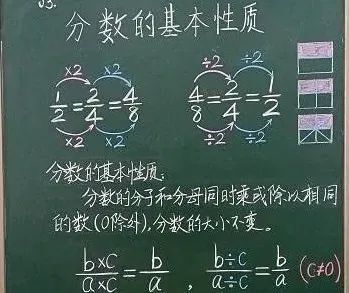 03.
分数的基本性质
×2 ×2 ÷2 ÷2
1/2 = 2/4 = 4/8 4/8 = 2/4 = 1/2
×2 ×2 ÷2 ÷2
分数的基本性质:
分数的分子和分母同时乘或除以相同
的数(0除外),分数的大小不变。
b×c/a×c = b/a , b÷c/a÷c = b/a (c≠0)